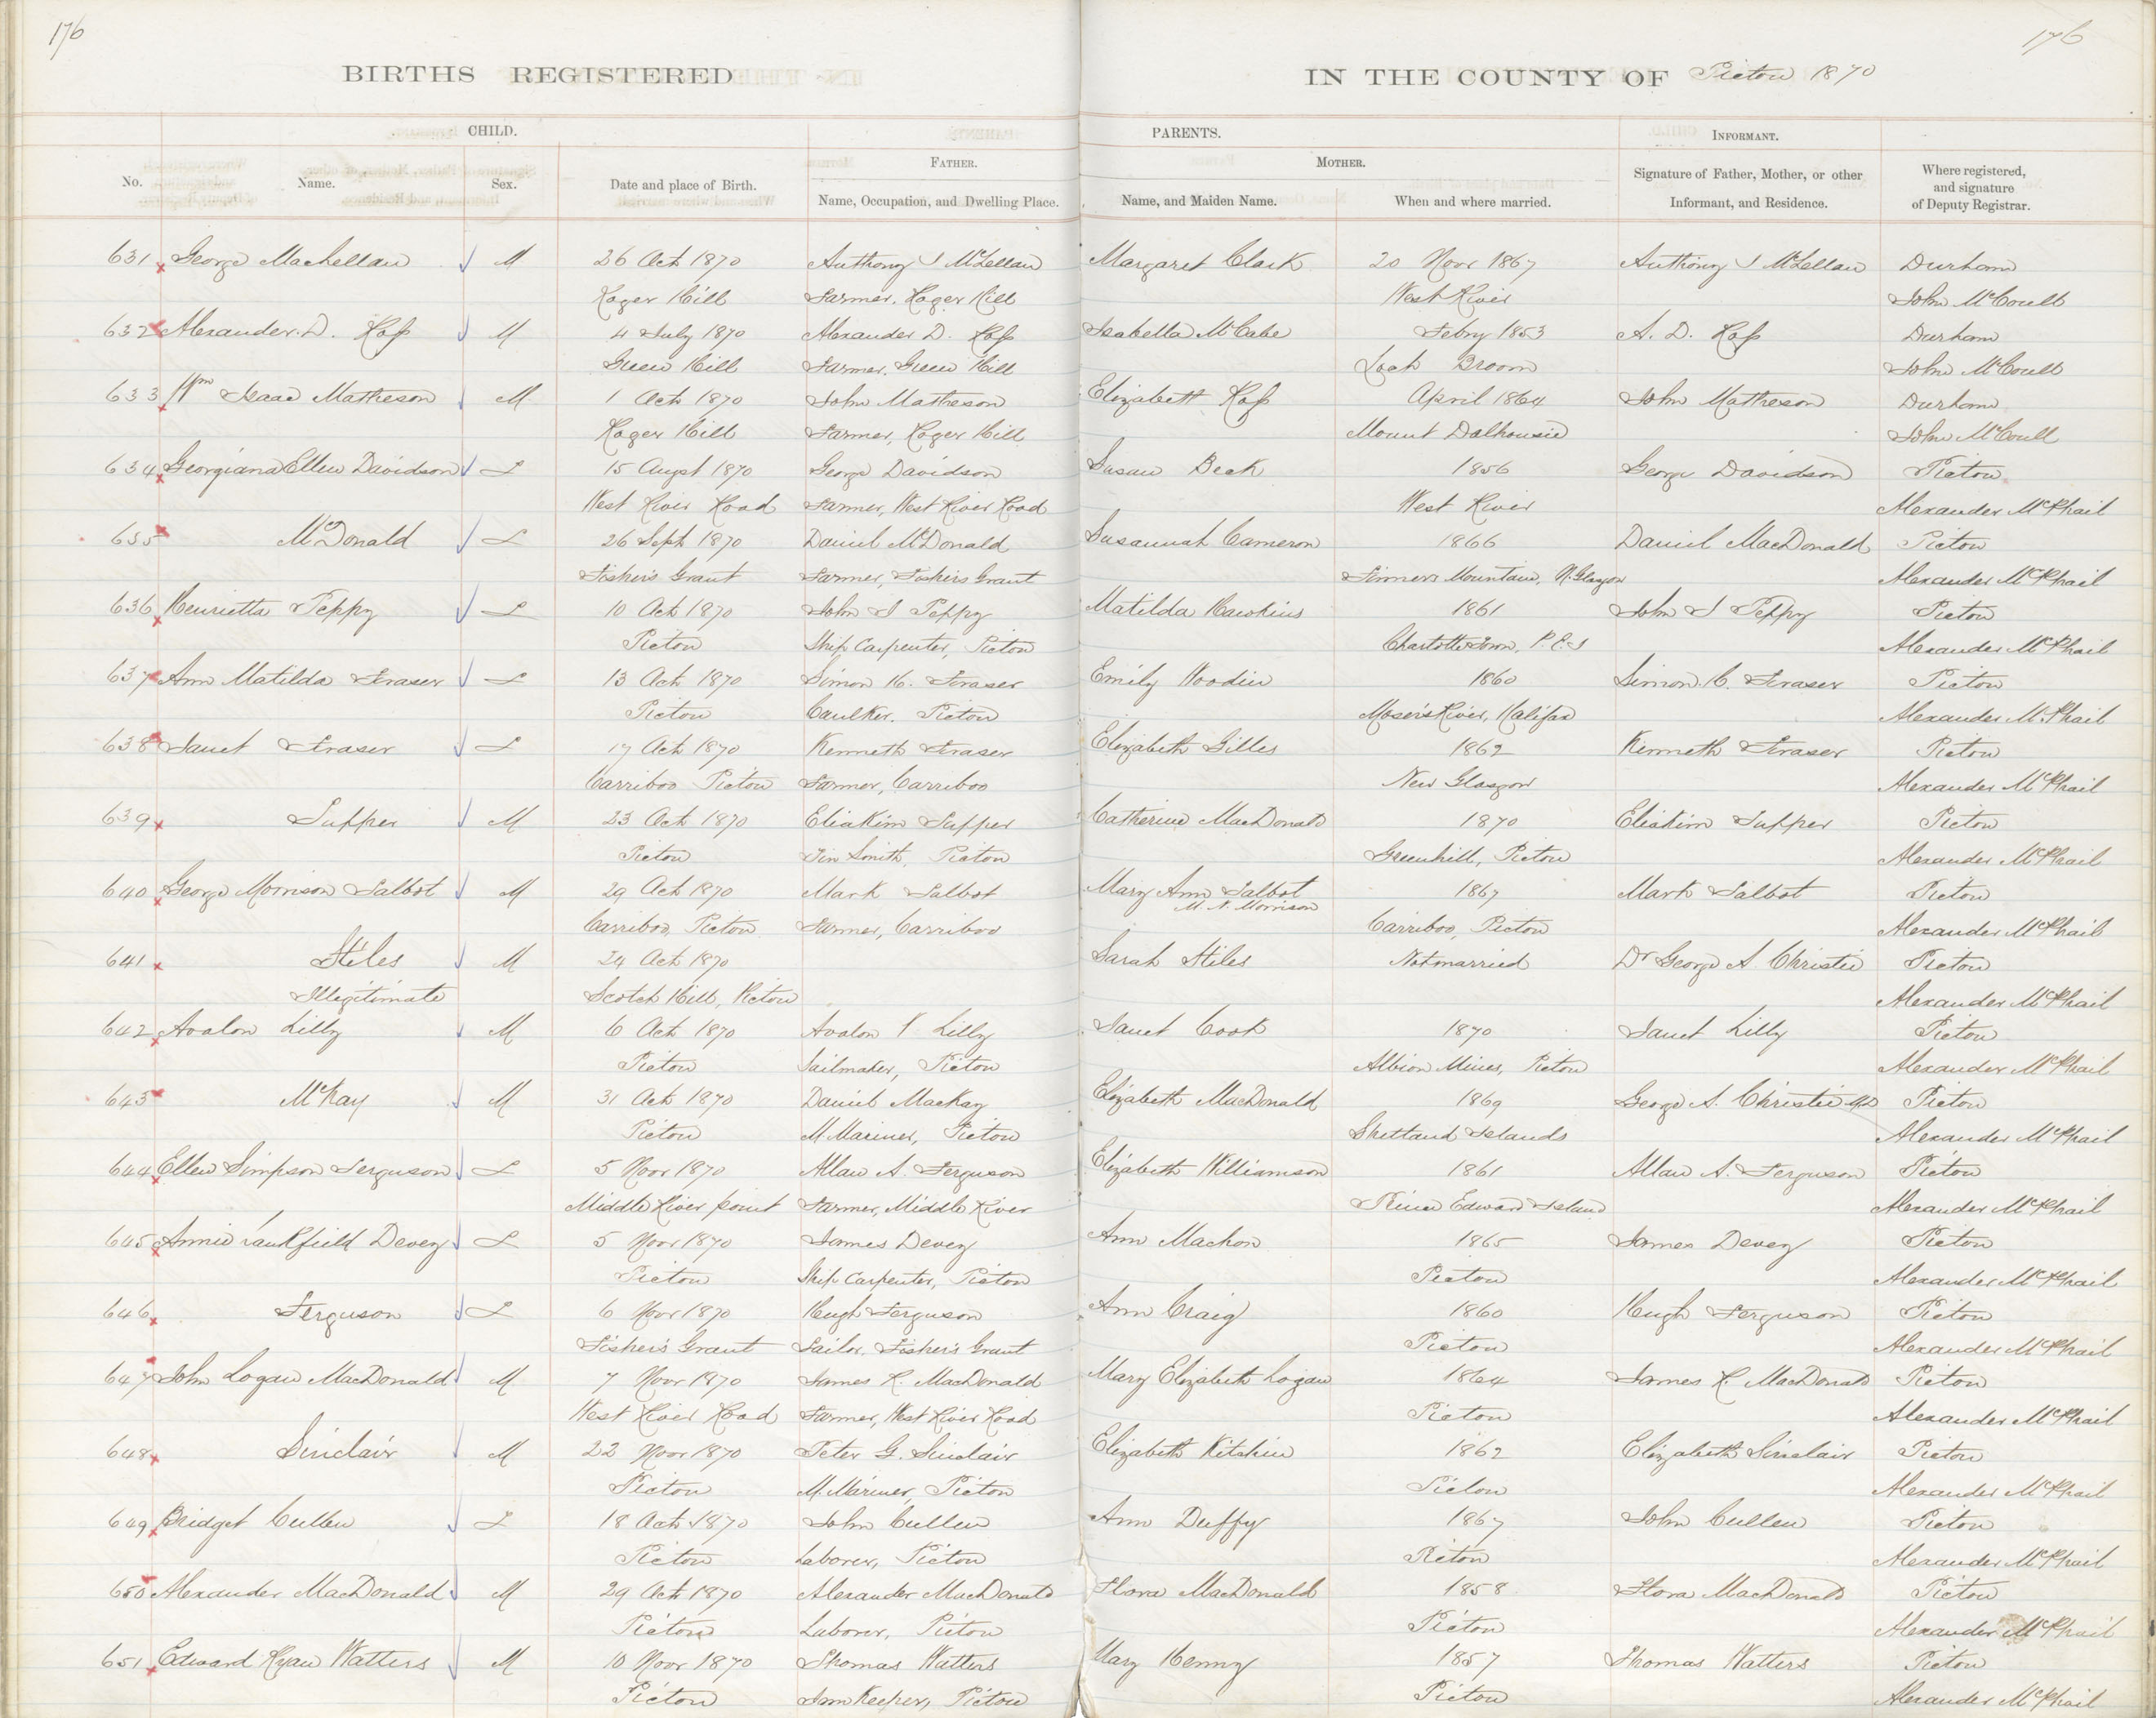 176
176
BIRTHS REGISTERED
IN THE COUNTY OF Pictou 1870
CHILD.
PARENTS.
INFORMANT.
FATHER.
MOTHER.
No.
Name.
Sex.
Date and place of Birth.
Name, Occupation, and Dwelling Place.
Name, and Maiden Name.
When and where married.
Signature of Father, Mother, or other
Informant, and Residence.
Where registered,
and signature
of Deputy Registrar.
631 George MacLellan M 26 Oct 1870 Anthony J McLellan Margaret Clark 20 Novr 1867 Anthony J McLellan Durham
Roger Hill Farmer. Roger Hill West River John McCoull
632 Alexander. D. Ross M 4 July 1870 Alexander D. Ross Isabella McCabe Febry 1853 A. D. Ross Durham
Green Hill Farmer. Green Hill Loch Broom John McCoull
633 Wm Isaac Matheson M 1 Oct 1870 John Matheson Elizabeth Ross April 1864 John Matheson Durham
Roger Hill Farmer, Roger Hill Mount Dalhousie John McCoull
634 Georgiana Ellen Davidson F 15 Augst 1870 George Davidson Susan Beck 1856 George Davidson Pictou
West River Road Farmer, West River Road West River Alexander McPhail
635 McDonald F 26 Sept 1870 Daniel McDonald Susannah Cameron 1866 Daniel MacDonald Pictou
Fishers Grant Farmer, Fishers Grant Mountain, N. Glasgow Alexander McPhail
636 Henrietta Peppy F 10 Oct 1870 John J Peppy Matilda Hawkins 1861 John J Peppy Pictou
Pictou Ship Carpenter, Pictou Charlotte Town, P.E.I Alexander McPhail
637 Ann Matilda Fraser F 13 Oct 1870 Simon H. Fraser Emily Woodin 1860 Simon H. Fraser Pictou
Pictou Caulker. Pictou Moser's River, Halifax Alexander McPhail
638 Janet Fraser F 17 Oct 1870 Kenneth Fraser Elizabeth Gilles 1862 Kenneth Fraser Pictou
Carriboo Pictou Farmer, Carriboo New Glasgow Alexander McPhail
639 Tupper M 23 Oct 1870 Eliakim Tupper Catherine MacDonald 1870 Eliakim Tupper Pictou
Pictou Tin Smith, Pictou Greenhill, Pictou Alexander McPhail
640 George Morrison Talbot M 29 Oct 1870 Mark Talbot Mary Ann Talbot 1867 Mark Talbot Pictou
M. N. Morrison
Carriboo, Pictou Farmer, Carriboo Carriboo, Pictou Alexander McPhail
641 Stiles M 24 Oct 1870 Sarah Stiles Not married Dr George A. Christie Pictou
Illegitimate Scotch Hill, Pictou Alexander McPhail
642 Avalon Lilly M 6 Oct 1870 Avalon Lilly Janet Cook 1870 Janet Lilly Pictou
Pictou Sailmaker, Pictou Albion Mines, Pictou Alexander McPhail
643 McKay M 31 Oct 1870 Daniel MacKay Elizabeth MacDonald 1869 George A. Christie MD Pictou
Pictou M. Mariner, Pictou Shetland Islands Alexander McPhail
644 Ellen Simpson Ferguson F 5 Novr 1870 Allan A. Ferguson Elizabeth Williamson 1861 Allan A. Ferguson Pictou
Middle River point Farmer, Middle River Prince Edward Island Alexander McPhail
645 Annie Devey F 5 Novr 1870 James Devey Ann Machon 1865 James Devey Pictou
Pictou Ship Carpenter, Pictou Pictou Alexander McPhail
646 Ferguson F 6 Novr 1870 Hugh Ferguson Ann Craig 1860 Hugh Ferguson Pictou
Fisher's Grant Sailor. Fisher's Grant Pictou Alexander McPhail
647 John Logan MacDonald M 7 Novr 1870 James R. MacDonald Mary Elizabeth Logan 1864 James R. MacDonald Pictou
West River Road Farmer, West River Road Pictou Alexander McPhail
648 Sinclair M 22 Novr 1870 Peter G. Sinclair Elizabeth Kitchin 1862 Elizabeth Sinclair Pictou
Pictou M. Mariner, Pictou Pictou Alexander McPhail
649 Bridget Cullen F 18 Oct 1870 John Cullen Ann Duffy 1867 John Cullen Pictou
Pictou Laborer, Pictou Pictou Alexander McPhail
650 Alexander MacDonald M 29 Oct 1870 Alexander MacDonald Flora MacDonald 1858 Flora MacDonald Pictou
Pictou Laborer, Pictou Pictou Alexander McPhail
651 Edward Ryan Watters M 10 Novr 1870 Thomas Watters Mary Kenny 1857 Thomas Watters Pictou
Pictou Inn Keeper, Pictou Pictou Alexander McPhail